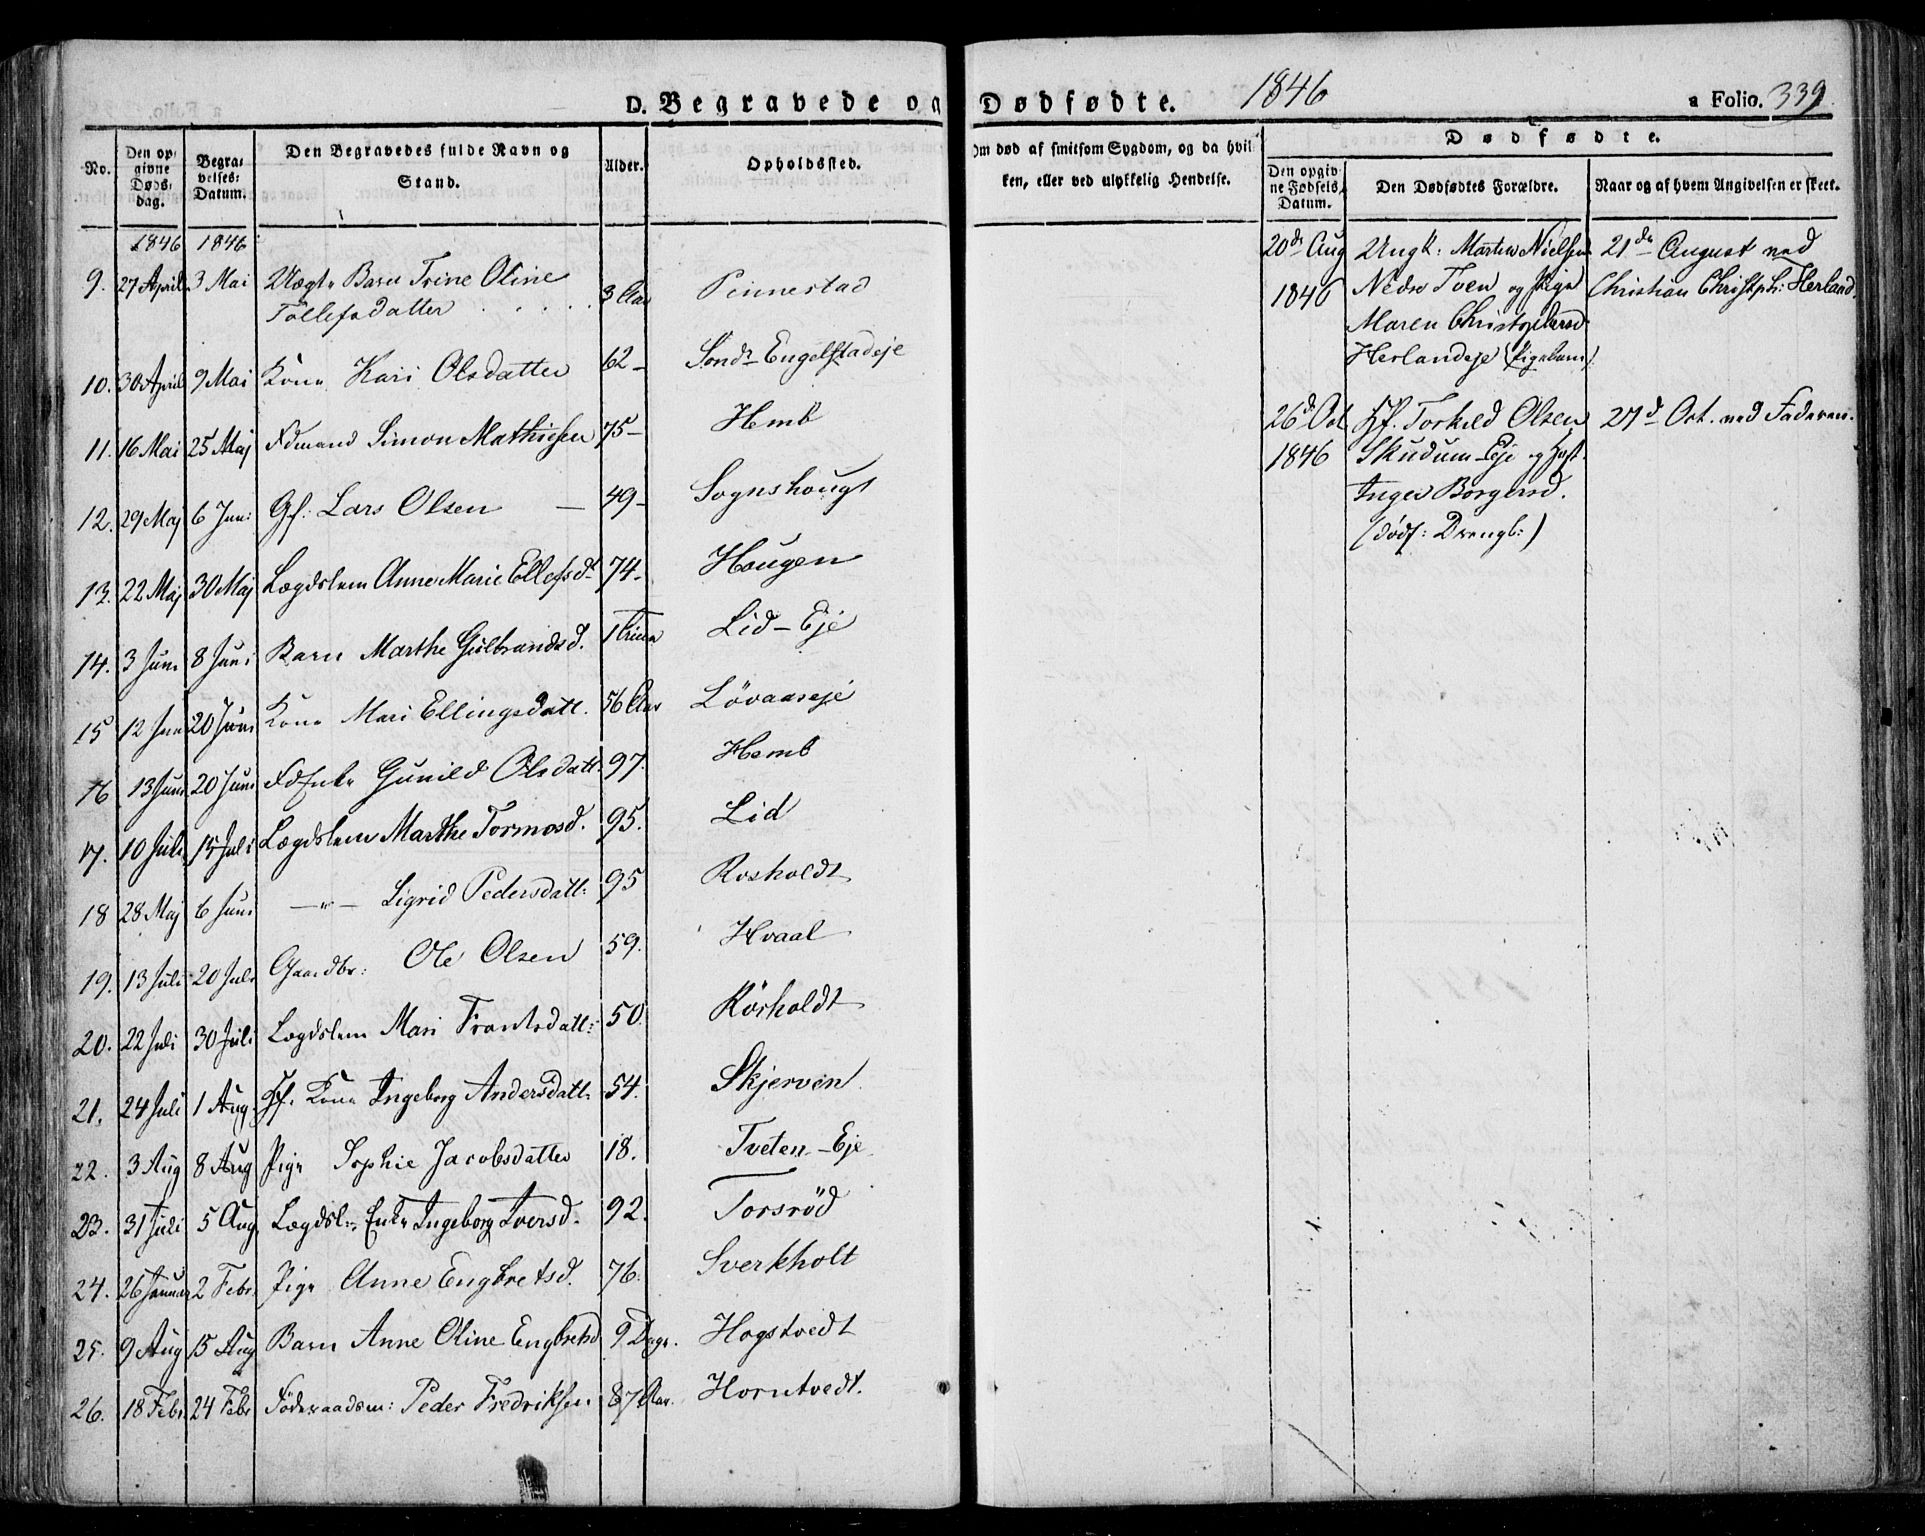 D. Begravede og Dødfødte. 1846 a Folio. 339
No. Den opgivne Dødsdag. Begravelses-Datum. Den Begravedes fulde Navn og Stand. Alder. Opholdssted. Om død af smitsom Sygdom, og da hvilken, eller ved ulykkelig Hendelse.
Dødfødte.
Den opgivne Fødsels Datum. Den Dødfødtes Forældre. Naar og af hvem Angivelsen er skeet.
1846 1846
9. 27 April 3 Mai Uægte Barn Trine Oline
Tollefsdatter . . . . 3 Aar Pennestad
10. 30 April 9 Mai Kone Kari Olsdatter 62 – Sondr Engelstadeje
11. 16 Mai 25 Maj Fdmand Simon Mathiesen 75 – Hemb
12. 29 Maj 6 Jun: Gf: Lars Olsen — 49 – Sognshougt
13. 22 Maj 30 Maj Lægdslem Anne Marie Ellefsd. 74 – Hougen
14. 3 Juni 8 Juni Barn Marthe Gulbrandsd. 1 Time Lid – Eje
15 12 Juni 20 Juni Kone Mari Ellingsdatt. 56 Aar Løvaaseje
16 13 Juni 20 Juni FdEnke Gunild Olsdatt: 97. Hemb
17. 10 Juli 15 Juli Lægdslem Marthe Tormosd. 95. Lid
18 28 Maj 6 Juni —"— Sigrid Pedersdatt: 95 Rosholdt
19. 13 Juli 20 Juli Gaardbr: Ole Olsen 59. Hvaal
20. 22 Juli 30 Juli Lægdslem Mari Frantsdatt: 50 Rörholdt
21. 24 Juli 1 Aug Gf. Kone Ingeborg Andersdatt. 54. Skjerven
22. 3 Aug 8 Aug Pige Sophie Jacobsdatter 18. Tveten – Eje
23. 31 Juli 5 Aug Lægdsl: Enke Ingeborg Iversd. 92. Torsröd
24. 26 Januar 2 Febr. Pige Anne Engbretsd. 76. Sverkholt
25. 9 Aug 15 Aug Barn Anne Oline Engbretsd 9 Dage. Hogstvedt
26. 18 Febr. 24 Febr Föderaadsm: Peder Fredriksen 87 Aar. Horntvedt.
20de Aug Ungk: Martin Nielsen 21de August ved
1846 Nedre Tven og Pige Christian Christoph: Herland.
Maren Christophersd
Herlandeje (Pigebarn)
26d Oct Hf. Torkild Olsen 27d Oct. ved Faderen.
1846 Skudum – Eje og Hust
Inger Borgersd.
(dødf: Drengb:)